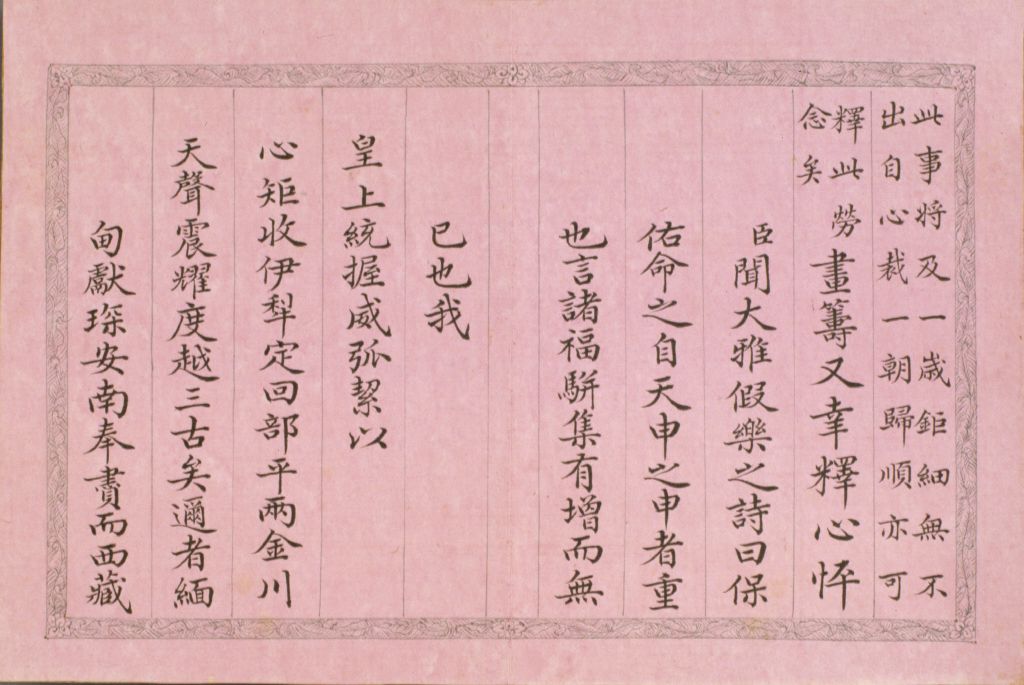 此事将及一歳鉅細無不
出自心裁一朝歸順亦可
釋此勞
念矣
畫籌又幸釋心怦
臣聞大雅假樂之詩曰保
佑命之自天申之申者重
也言諸福駢集有增而無
已也我
皇上統握威弧絜以
心矩收伊犁定回部平兩金川
天聲震耀度越三古矣邇者緬
甸獻琛安南奉賮而西藏